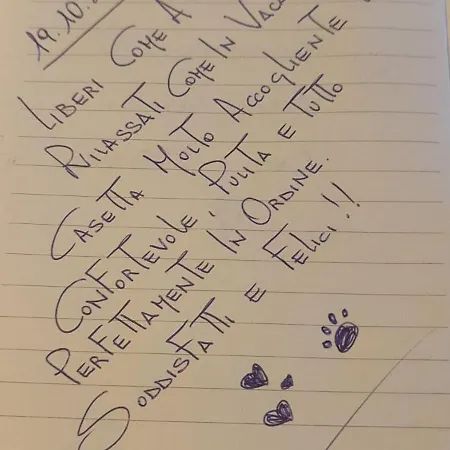 19.10.
LIBERI COME A
RILASSATI COME IN VACA
CASETTA MOLTO ACCOGLIENTE
CONFORTEVOLE, PULITA E TUTTO
PERFETTAMENTE IN ORDINE.
SODDISFATTI E FELICI!!